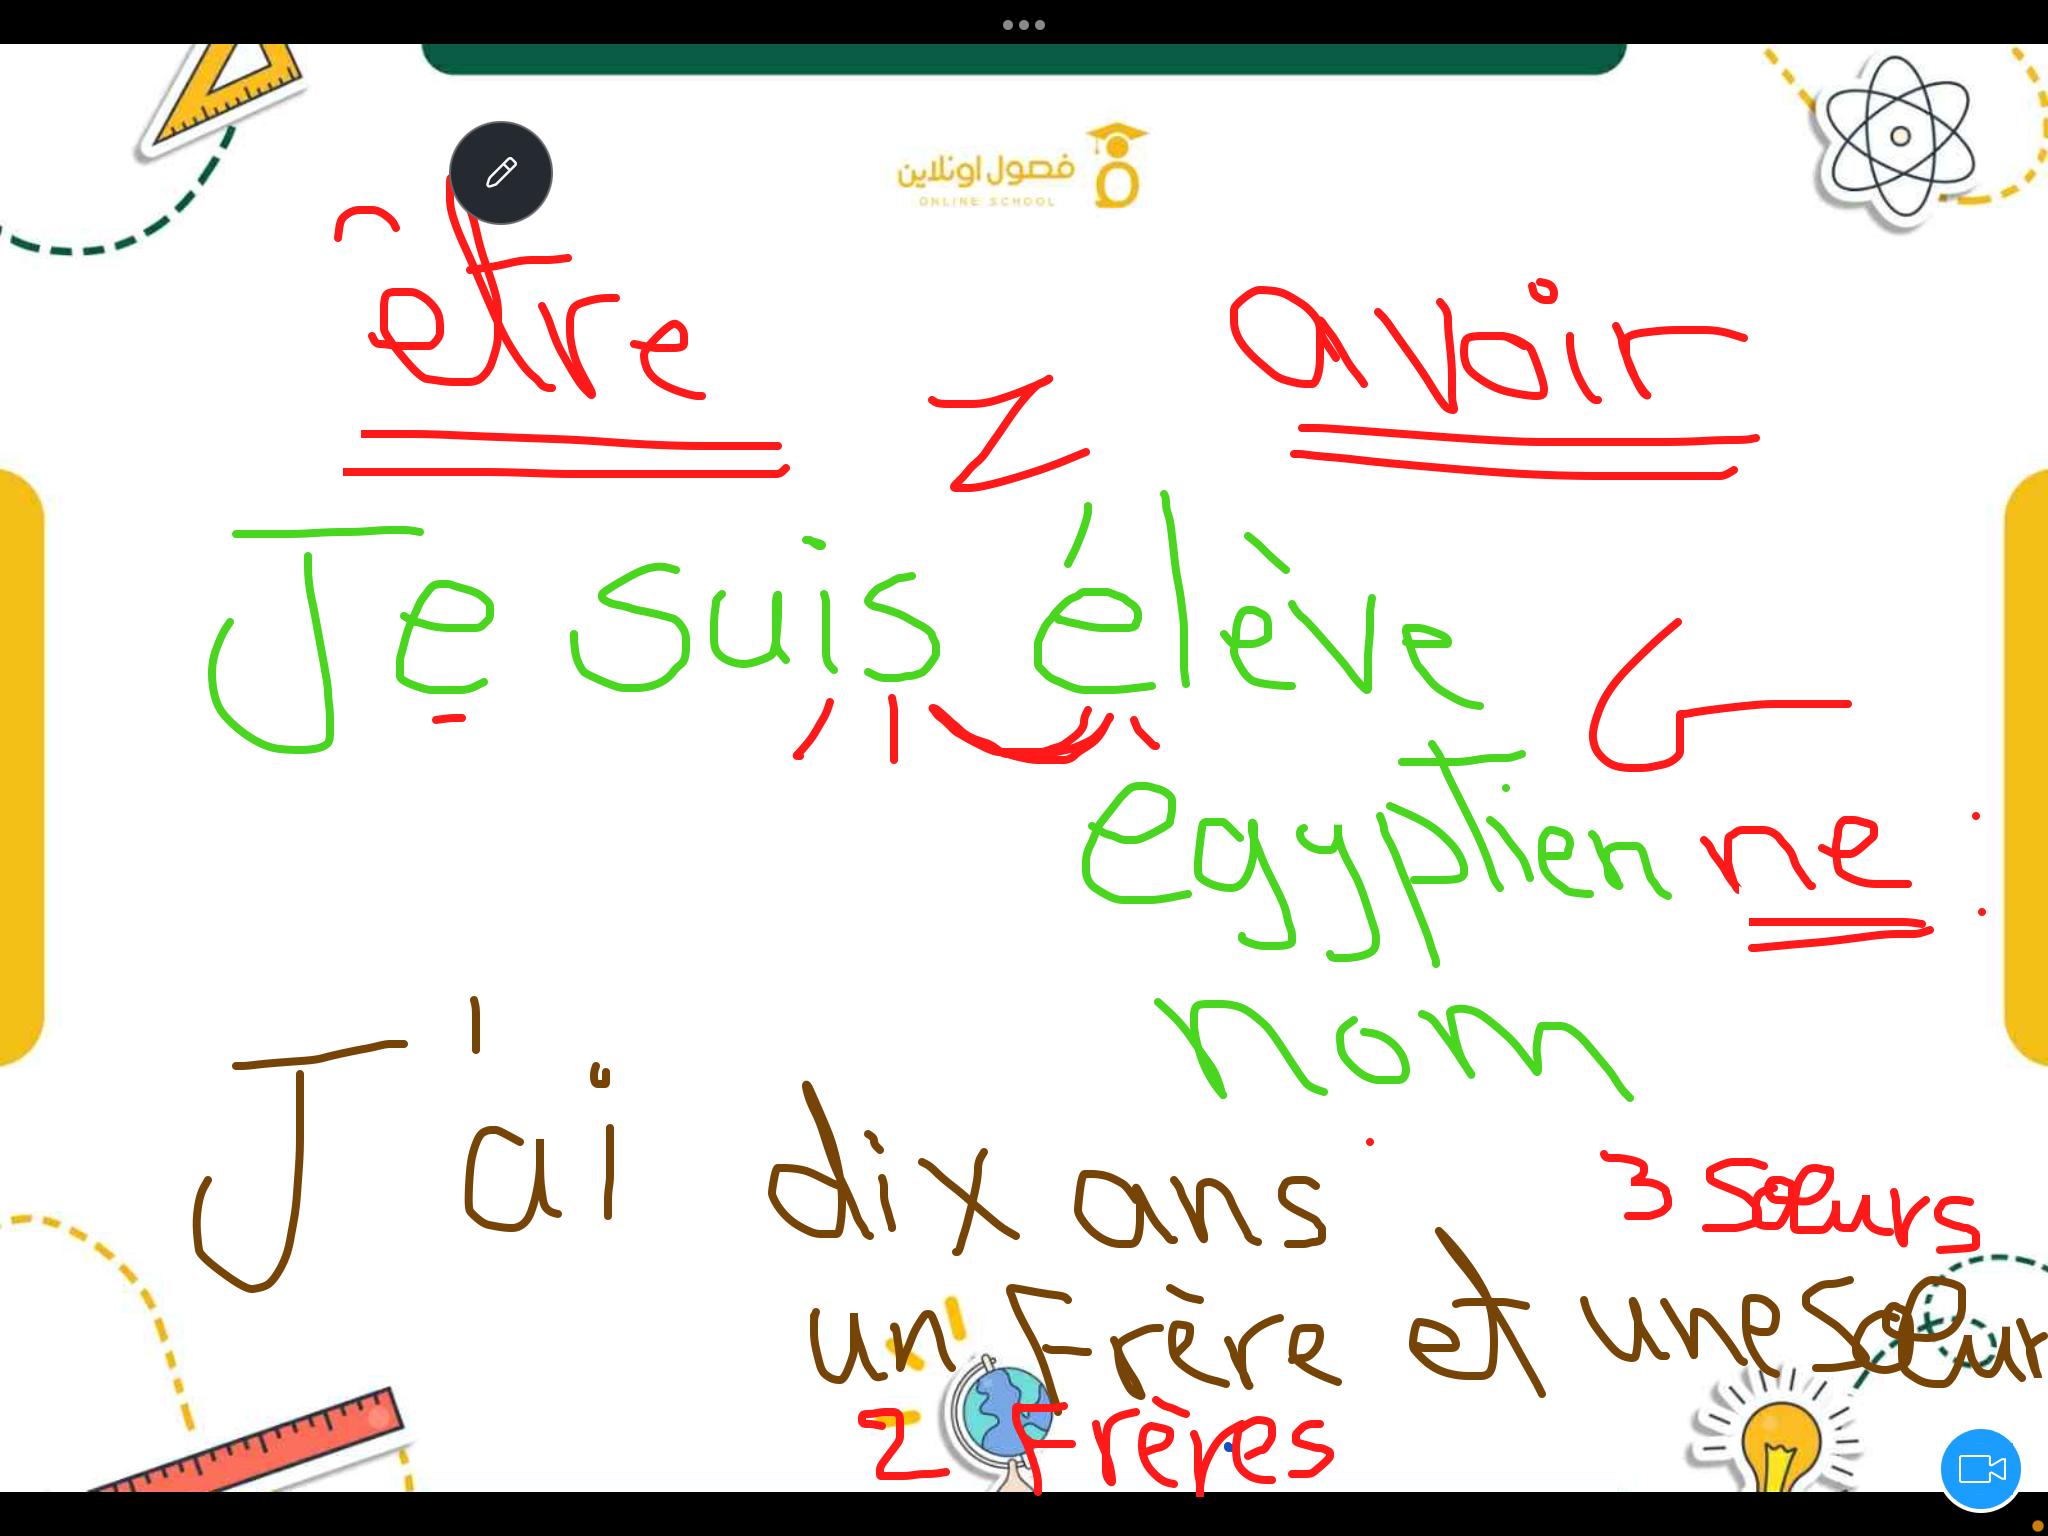 فصول اونلاين
ONLINE SCHOOL
être avoir
z
Je suis élève
egyptienne
nom
J'ai dix ans
3 sœurs
un Frère et une Sœur
2 Frères